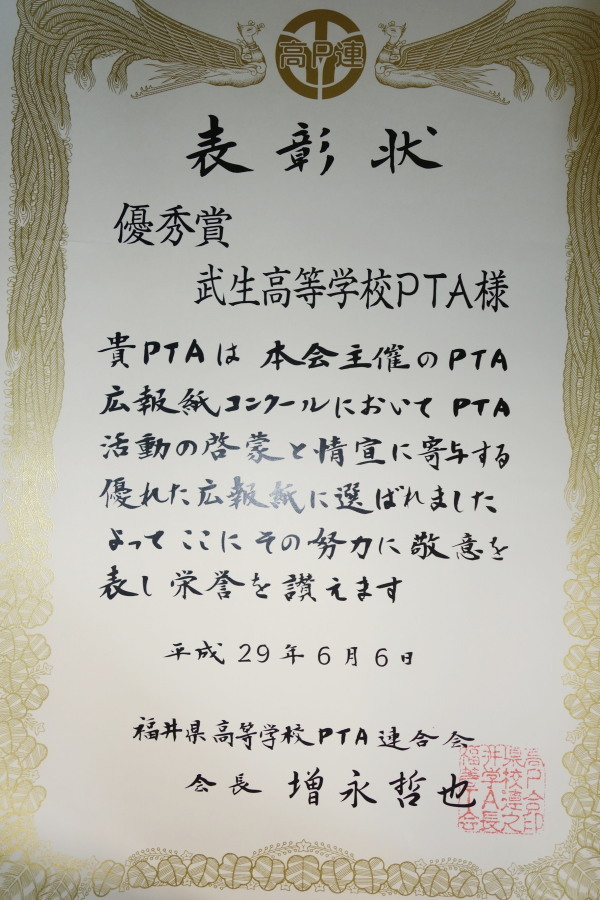 高P連
表彰状
優秀賞
武生高等学校PTA様
貴PTAは 本会主催のPTA
広報紙コンクールにおいて PTA
活動の啓蒙と情宣に寄与する
優れた広報紙に選ばれました
よって ここに その努力に 敬意を
表し 栄誉を 讃えます
平成 29 年 6 月 6 日
福井県高等学校PTA連合会
会長 増永哲也